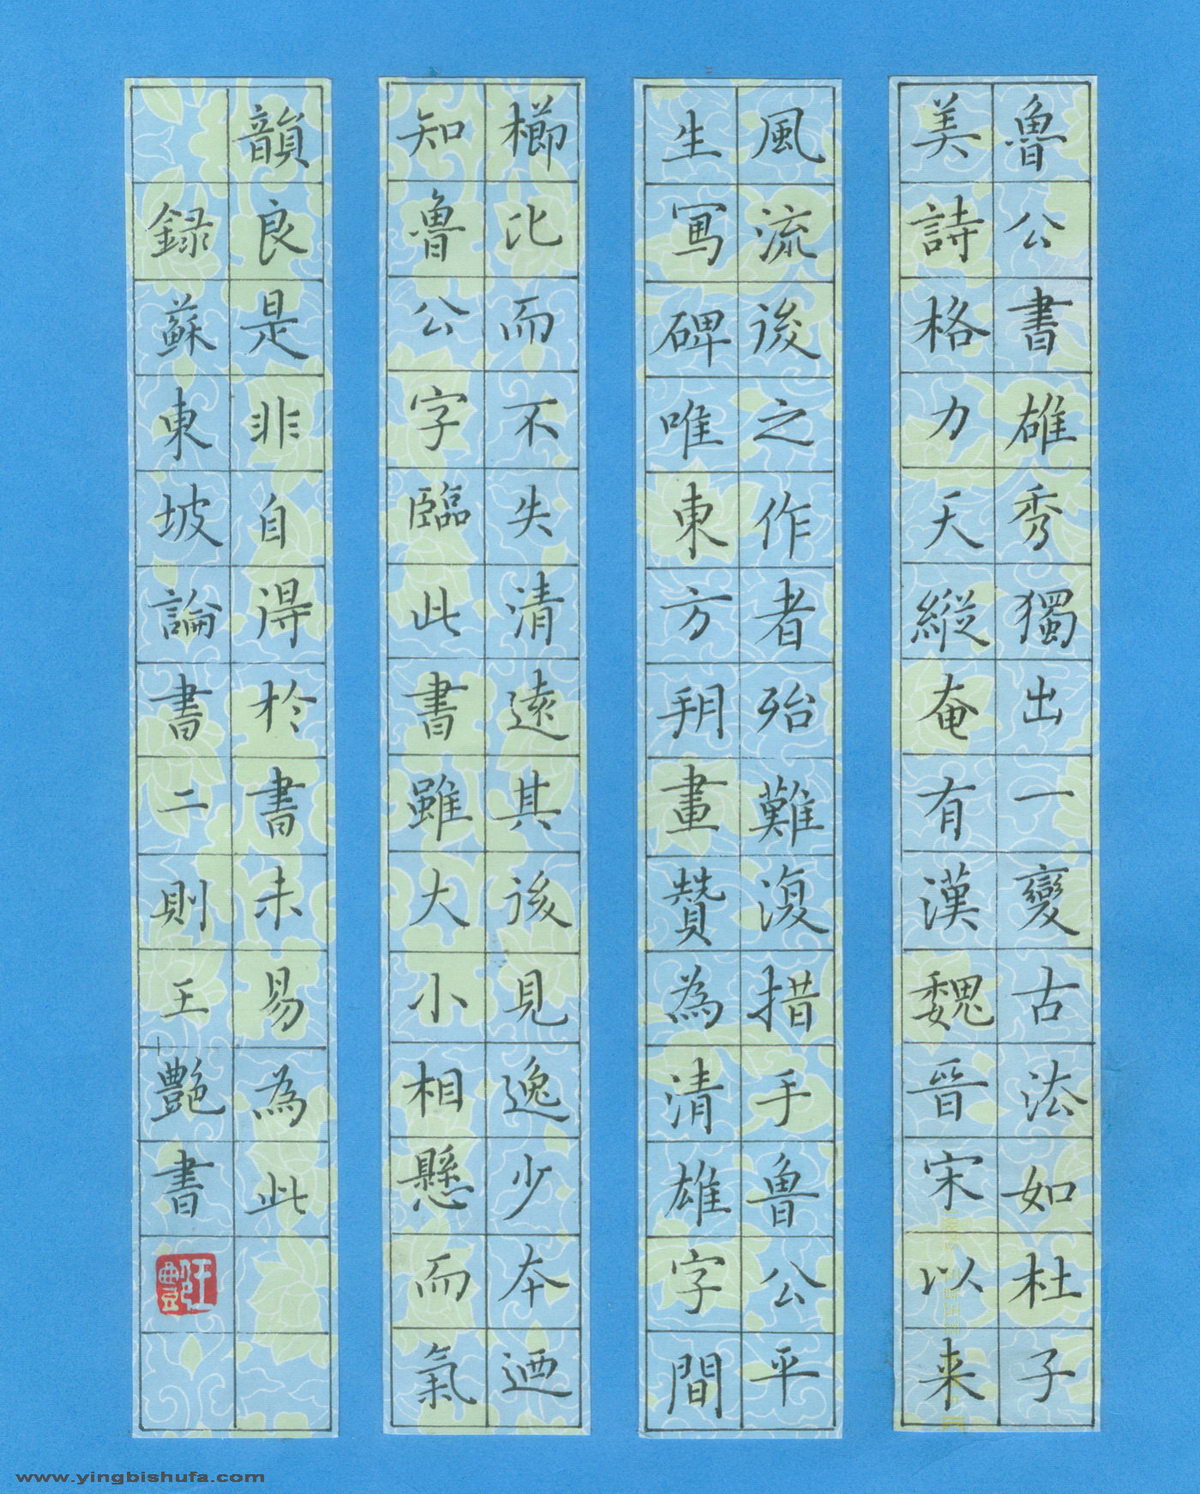 魯公書雄秀獨出一變古法如杜子
美詩格力天縱奄有漢魏晉宋以来
風流後之作者殆難復措手魯公平
生寫碑唯東方朔畫贊為清雄字間
櫛比而不失清遠其後見逸少本迺
知魯公字臨此書雖大小相懸而氣
韻良是非自得於書未易為此
録蘇東坡論書二則王艷書
王艷
www.yingbishufa.com